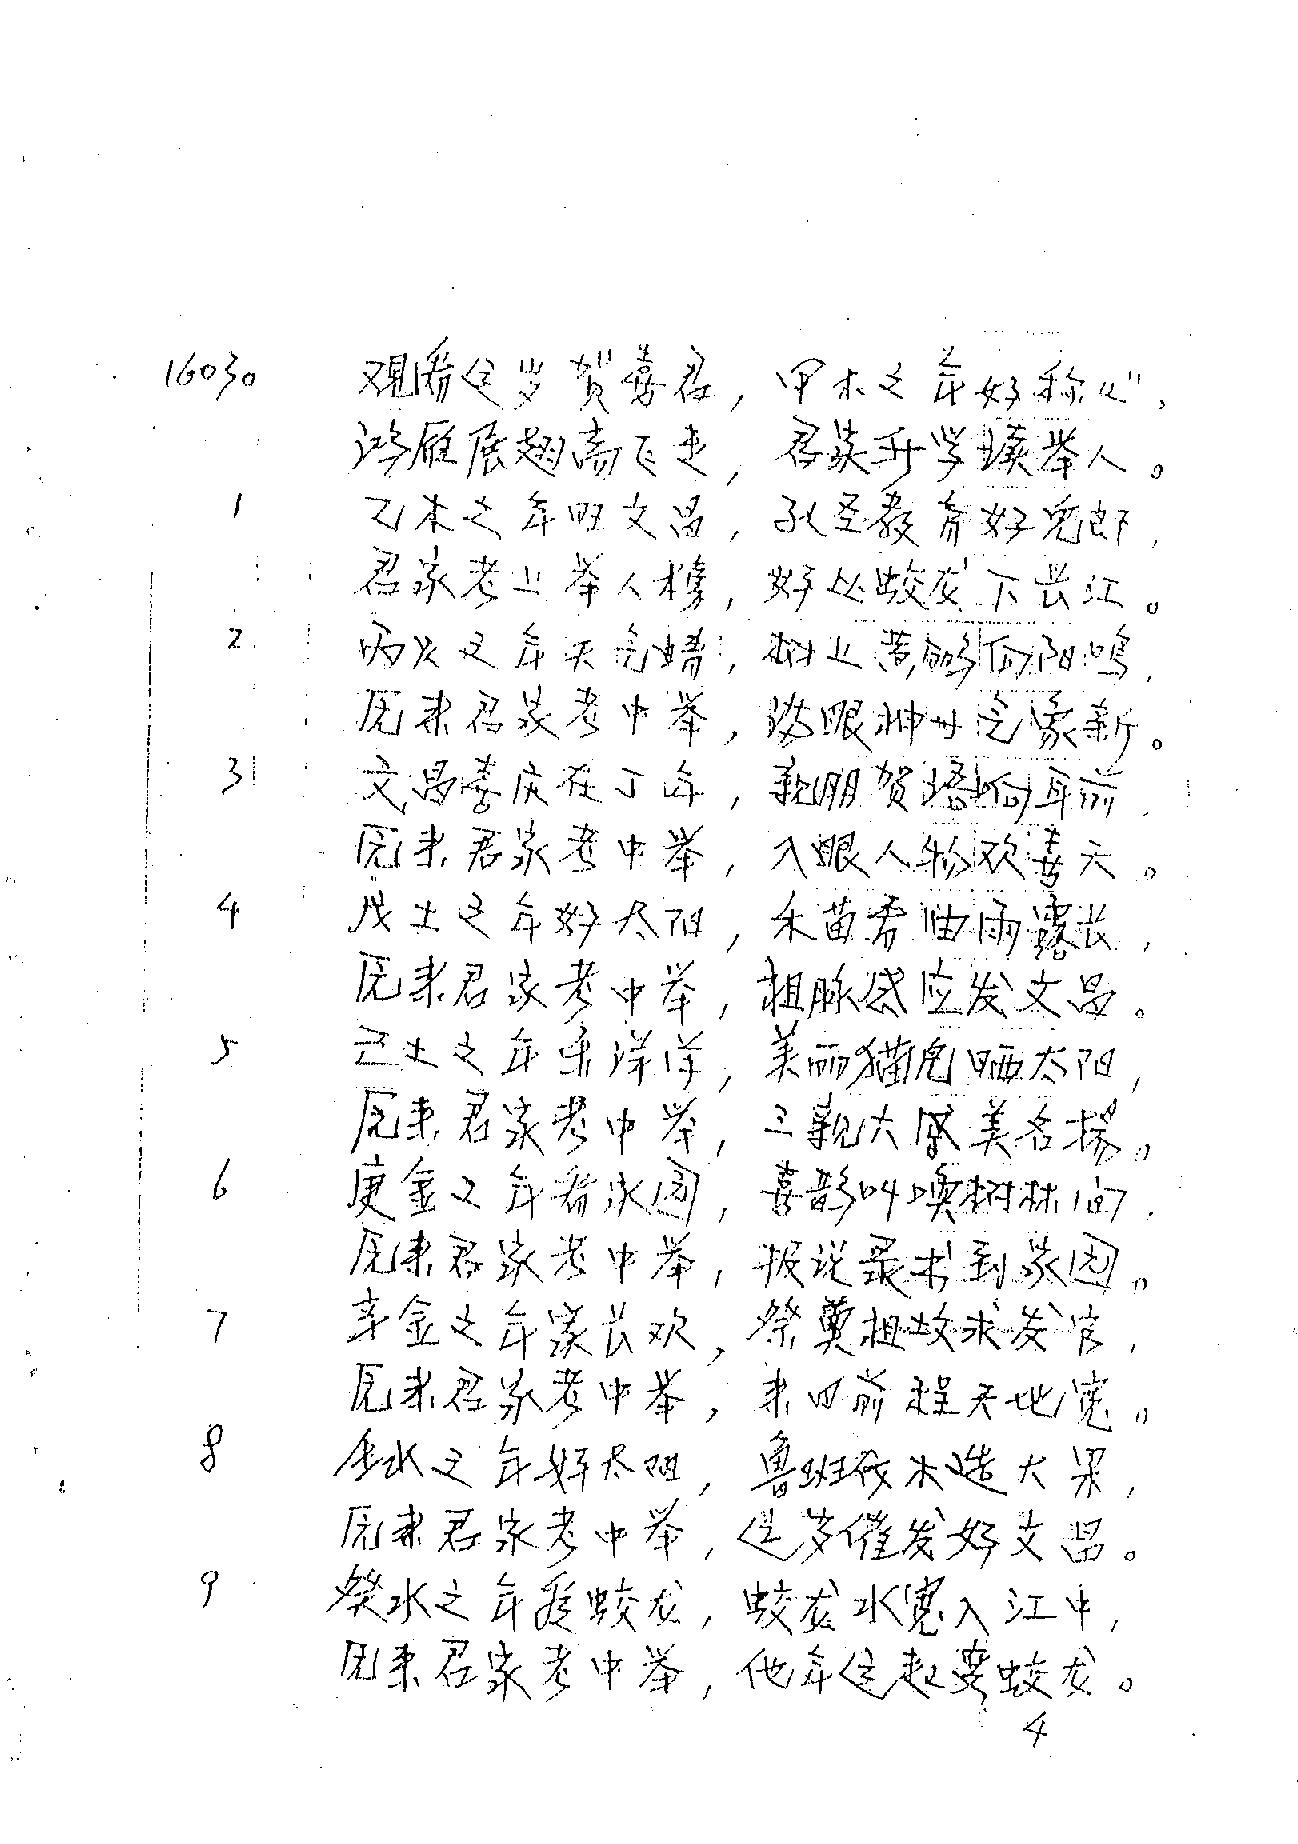 16030 观看这岁贺喜君，甲木之年好称心，
鸿雁展翅高飞走，君家升学读举人。
1 乙木之年旺文昌，孔圣教育好儿郎，
君家考上举人榜，好比蛟龙下长江。
2 丙火之年天气晴，树上 向阳鸣，
原来君家考中举，满眼神廿气象新。
3 文昌喜庆在丁年，亲朋贺语响耳前，
原来君家考中举，入眼人物欢喜天。
4 戊土之年好太阳，禾苗秀油雨露长，
原来君家考中举，祖脉感应发文昌。
5 己土之年乐洋洋，美丽猫儿晒太阳，
原来君家考中举，三亲六 美名扬。
6 庚金之年看永图，喜鹊叫唤树林间，
原来君家考中举，报说录书到家园。
7 辛金之年家长欢，祭奠祖坟求发官，
原来君家考中举，来日前程天地宽。
8 壬水之年好太阳，鲁班伐木造大梁，
原来君家考中举，这岁催发好文昌。
9 癸水之年 蛟龙，蛟龙水宽入江中，
原来君家考中举，他年这起要蛟龙。
4